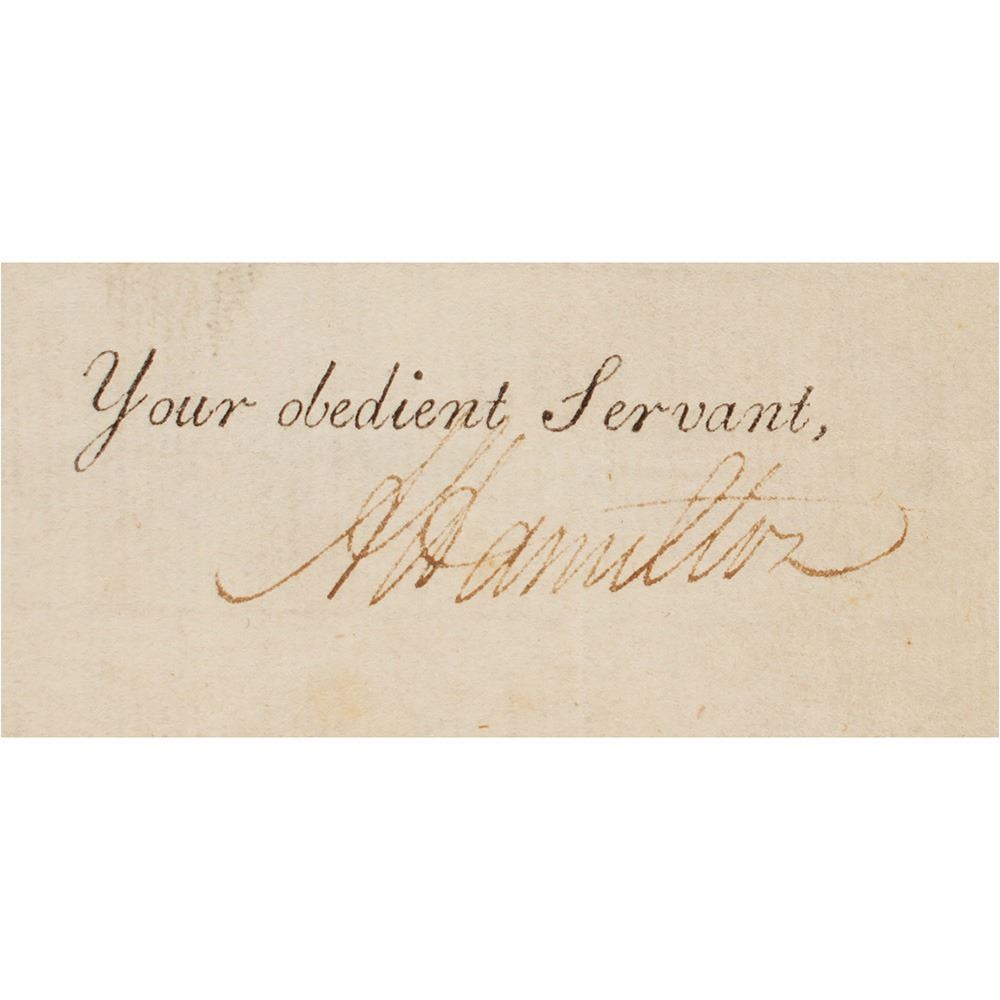 Your obedient Servant,
A Hamilton